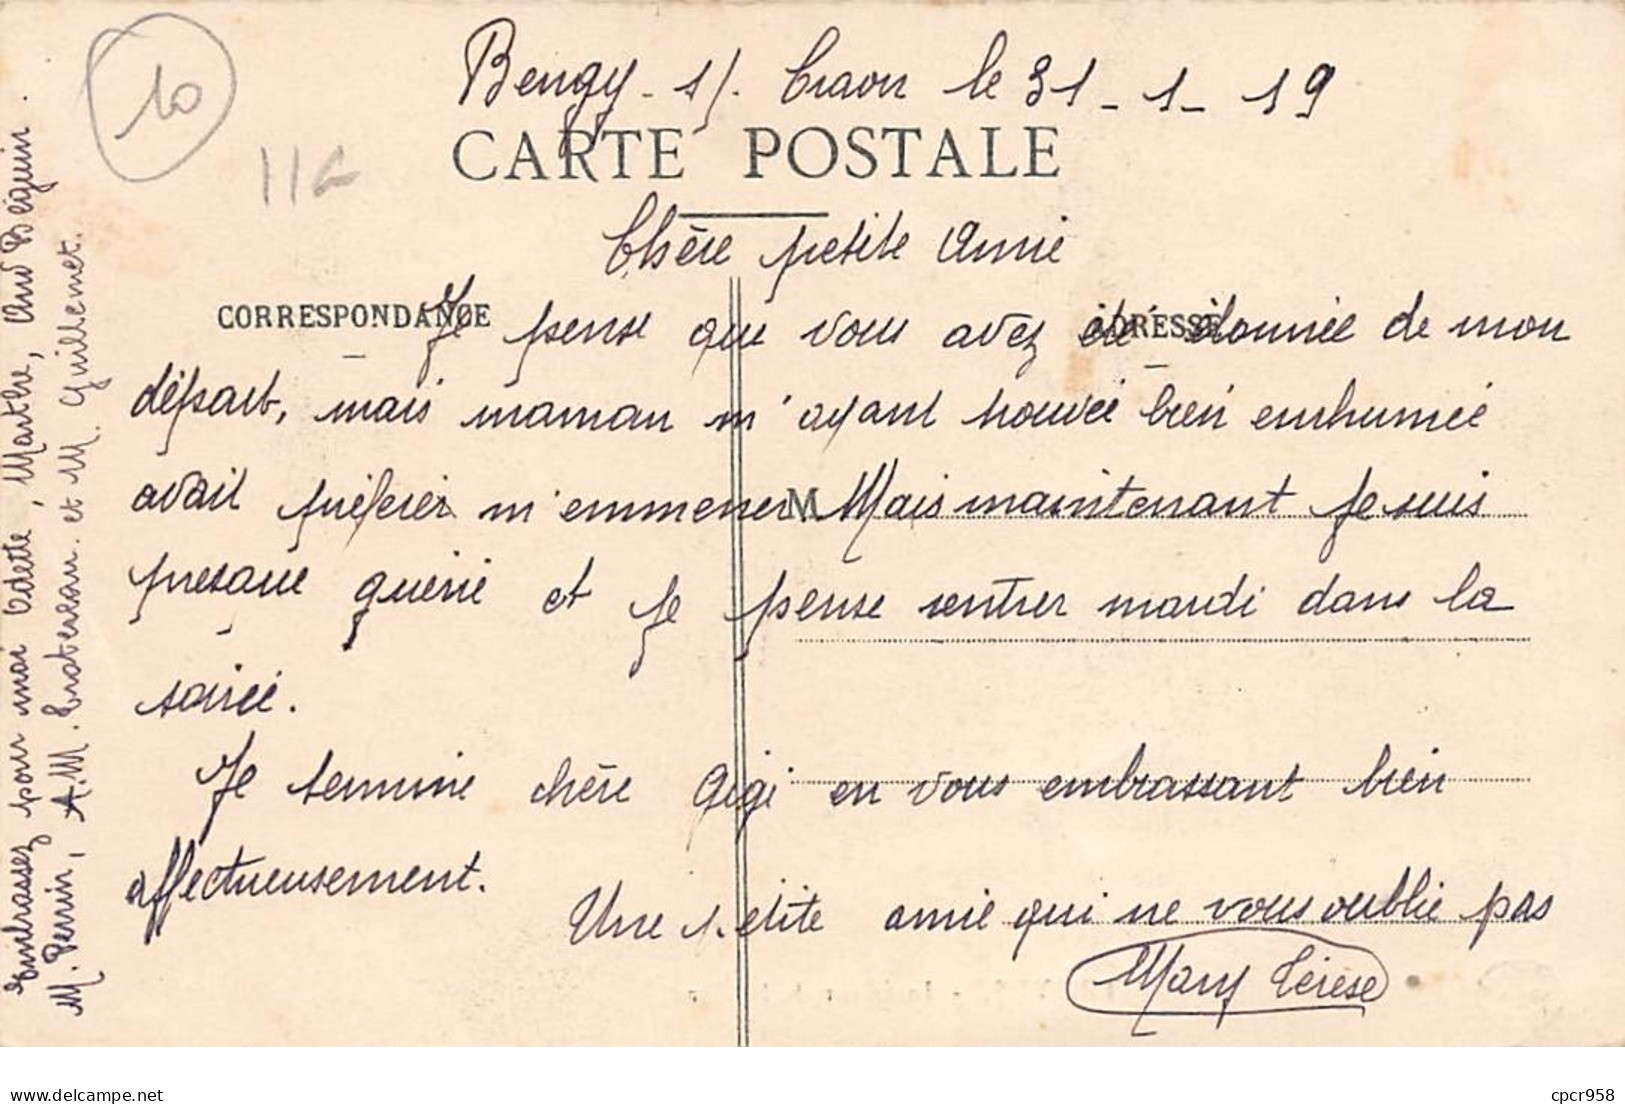 10
Bengy - s/. Craon le 31 - 1 - 19
CARTE POSTALE
Chère petite Amie
CORRESPONDANCE
ADRESSE
Je pense que vous avez été étonnée de mon
départ, mais maman m'ayant trouvée bien enrhumée
avait préférer m'emmener. Mais maintenant je suis
M
presque guérie et je pense rentrer mardi dans la
soirée.
Je termine chère Gigi en vous embrassant bien
affectueusement.
Une petite amie qui ne vous oublie pas
Mary Térèse
Embrassez pour moi Odette, Marthe, Béguin.
M. Perrin, A.M. et M. Guillemet.
delcampe.net
cpcr958